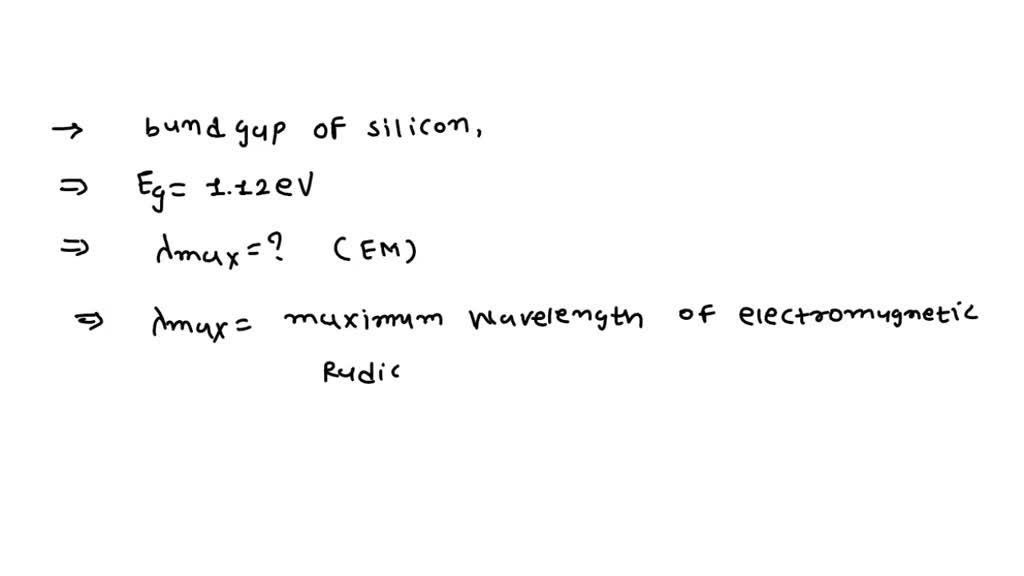 → band gap of silicon,
⇒ Eg = 1.12 eV
⇒ λmax = ? (EM)
⇒ λmax = maximum wavelength of electromagnetic
Radic